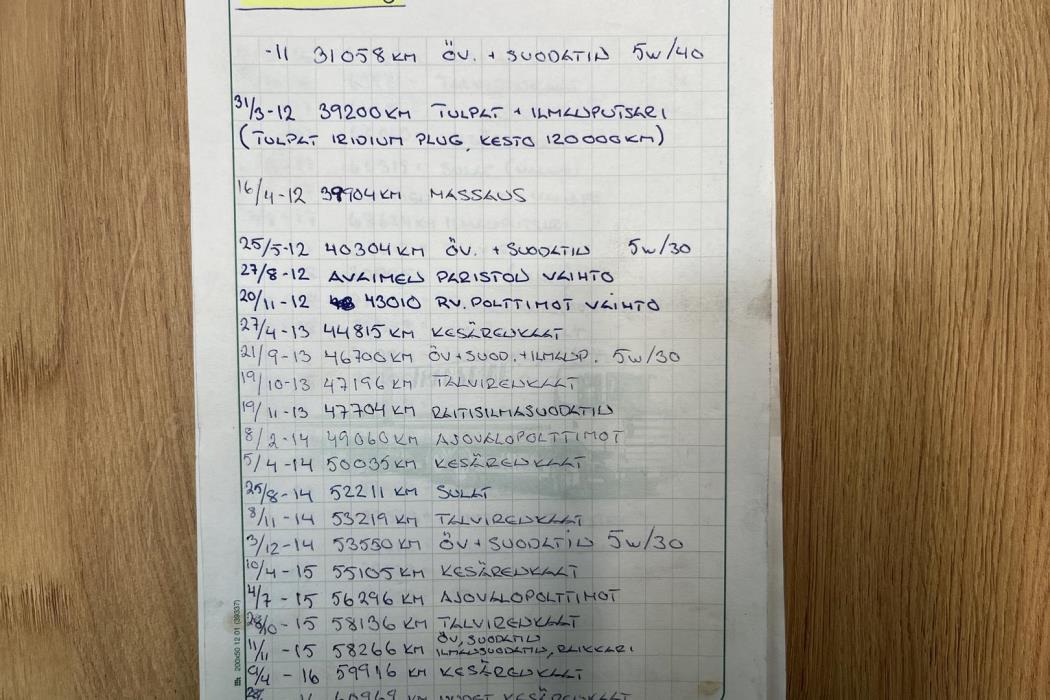 -11 31058KM ÖV. + SUODATIN 5W/40
31/3-12 39200KM TULPAT + ILMANPUTSARI
(TULPAT IRIDIUM PLUG, KESTO 120000KM)
16/4-12 39904KM MASSAUS
25/5-12 40304KM ÖV. + SUODATIN 5W/30
27/8-12 AVAIMEN PARISTON VAIHTO
20/11-12 43010 RV. POLTTIMOT VAIHTO
27/4-13 44815KM KESÄRENKAAT
21/9-13 46700KM ÖV+SUOD.+ILMANP. 5W/30
19/10-13 47196KM TALVIRENKAAT
19/11-13 47704KM RAITISILMASUODATIN
8/2-14 49060KM AJOVALOPOLTTIMOT
5/4-14 50035KM KESÄRENKAAT
25/8-14 52211KM SULAT
8/11-14 53219KM TALVIRENKAAT
3/12-14 53550KM ÖV+SUODATIN 5W/30
10/4-15 55105KM KESÄRENKAAT
4/7-15 56296KM AJOVALOPOLTTIMOT
-15 58136KM TALVIRENKAAT
ÖV, SUODATIN
11/11-15 58266KM ILMANSUODATIN, RAIKKARI
9/4-16 59916KM KESÄRENKAAT
KESÄRENKAAT
200x50 12 01 (39337)